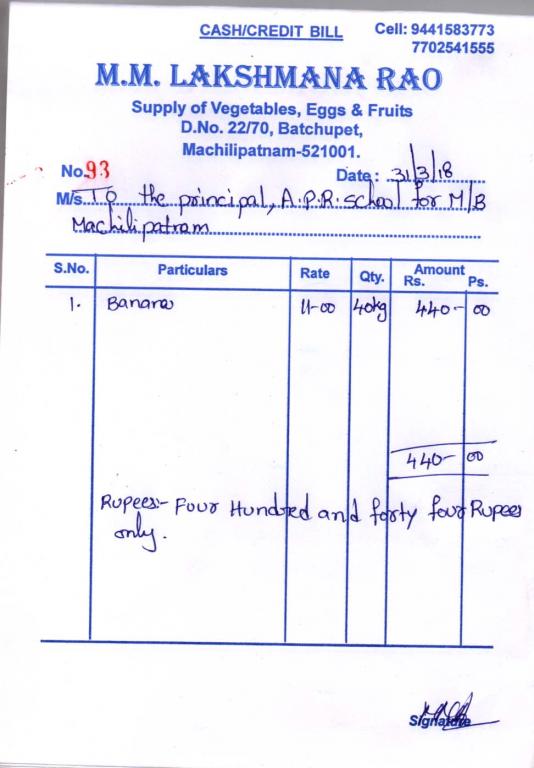 CASH/CREDIT BILL Cell: 9441583773
7702541555
M.M. LAKSHMANA RAO
Supply of Vegetables, Eggs & Fruits
D.No. 22/70, Batchupet,
Machilipatnam-521001.
No. 93 Date: 31/3/18
M/s. To the principal, A.P.R. school for M/B
Machilipatnam
S.No. Particulars Rate Qty. Amount
Rs. Ps.
1. Banana 11-00 40kg 440- 00
440- 00
Rupees:- Four Hundred and forty four Rupees
only.
Signature